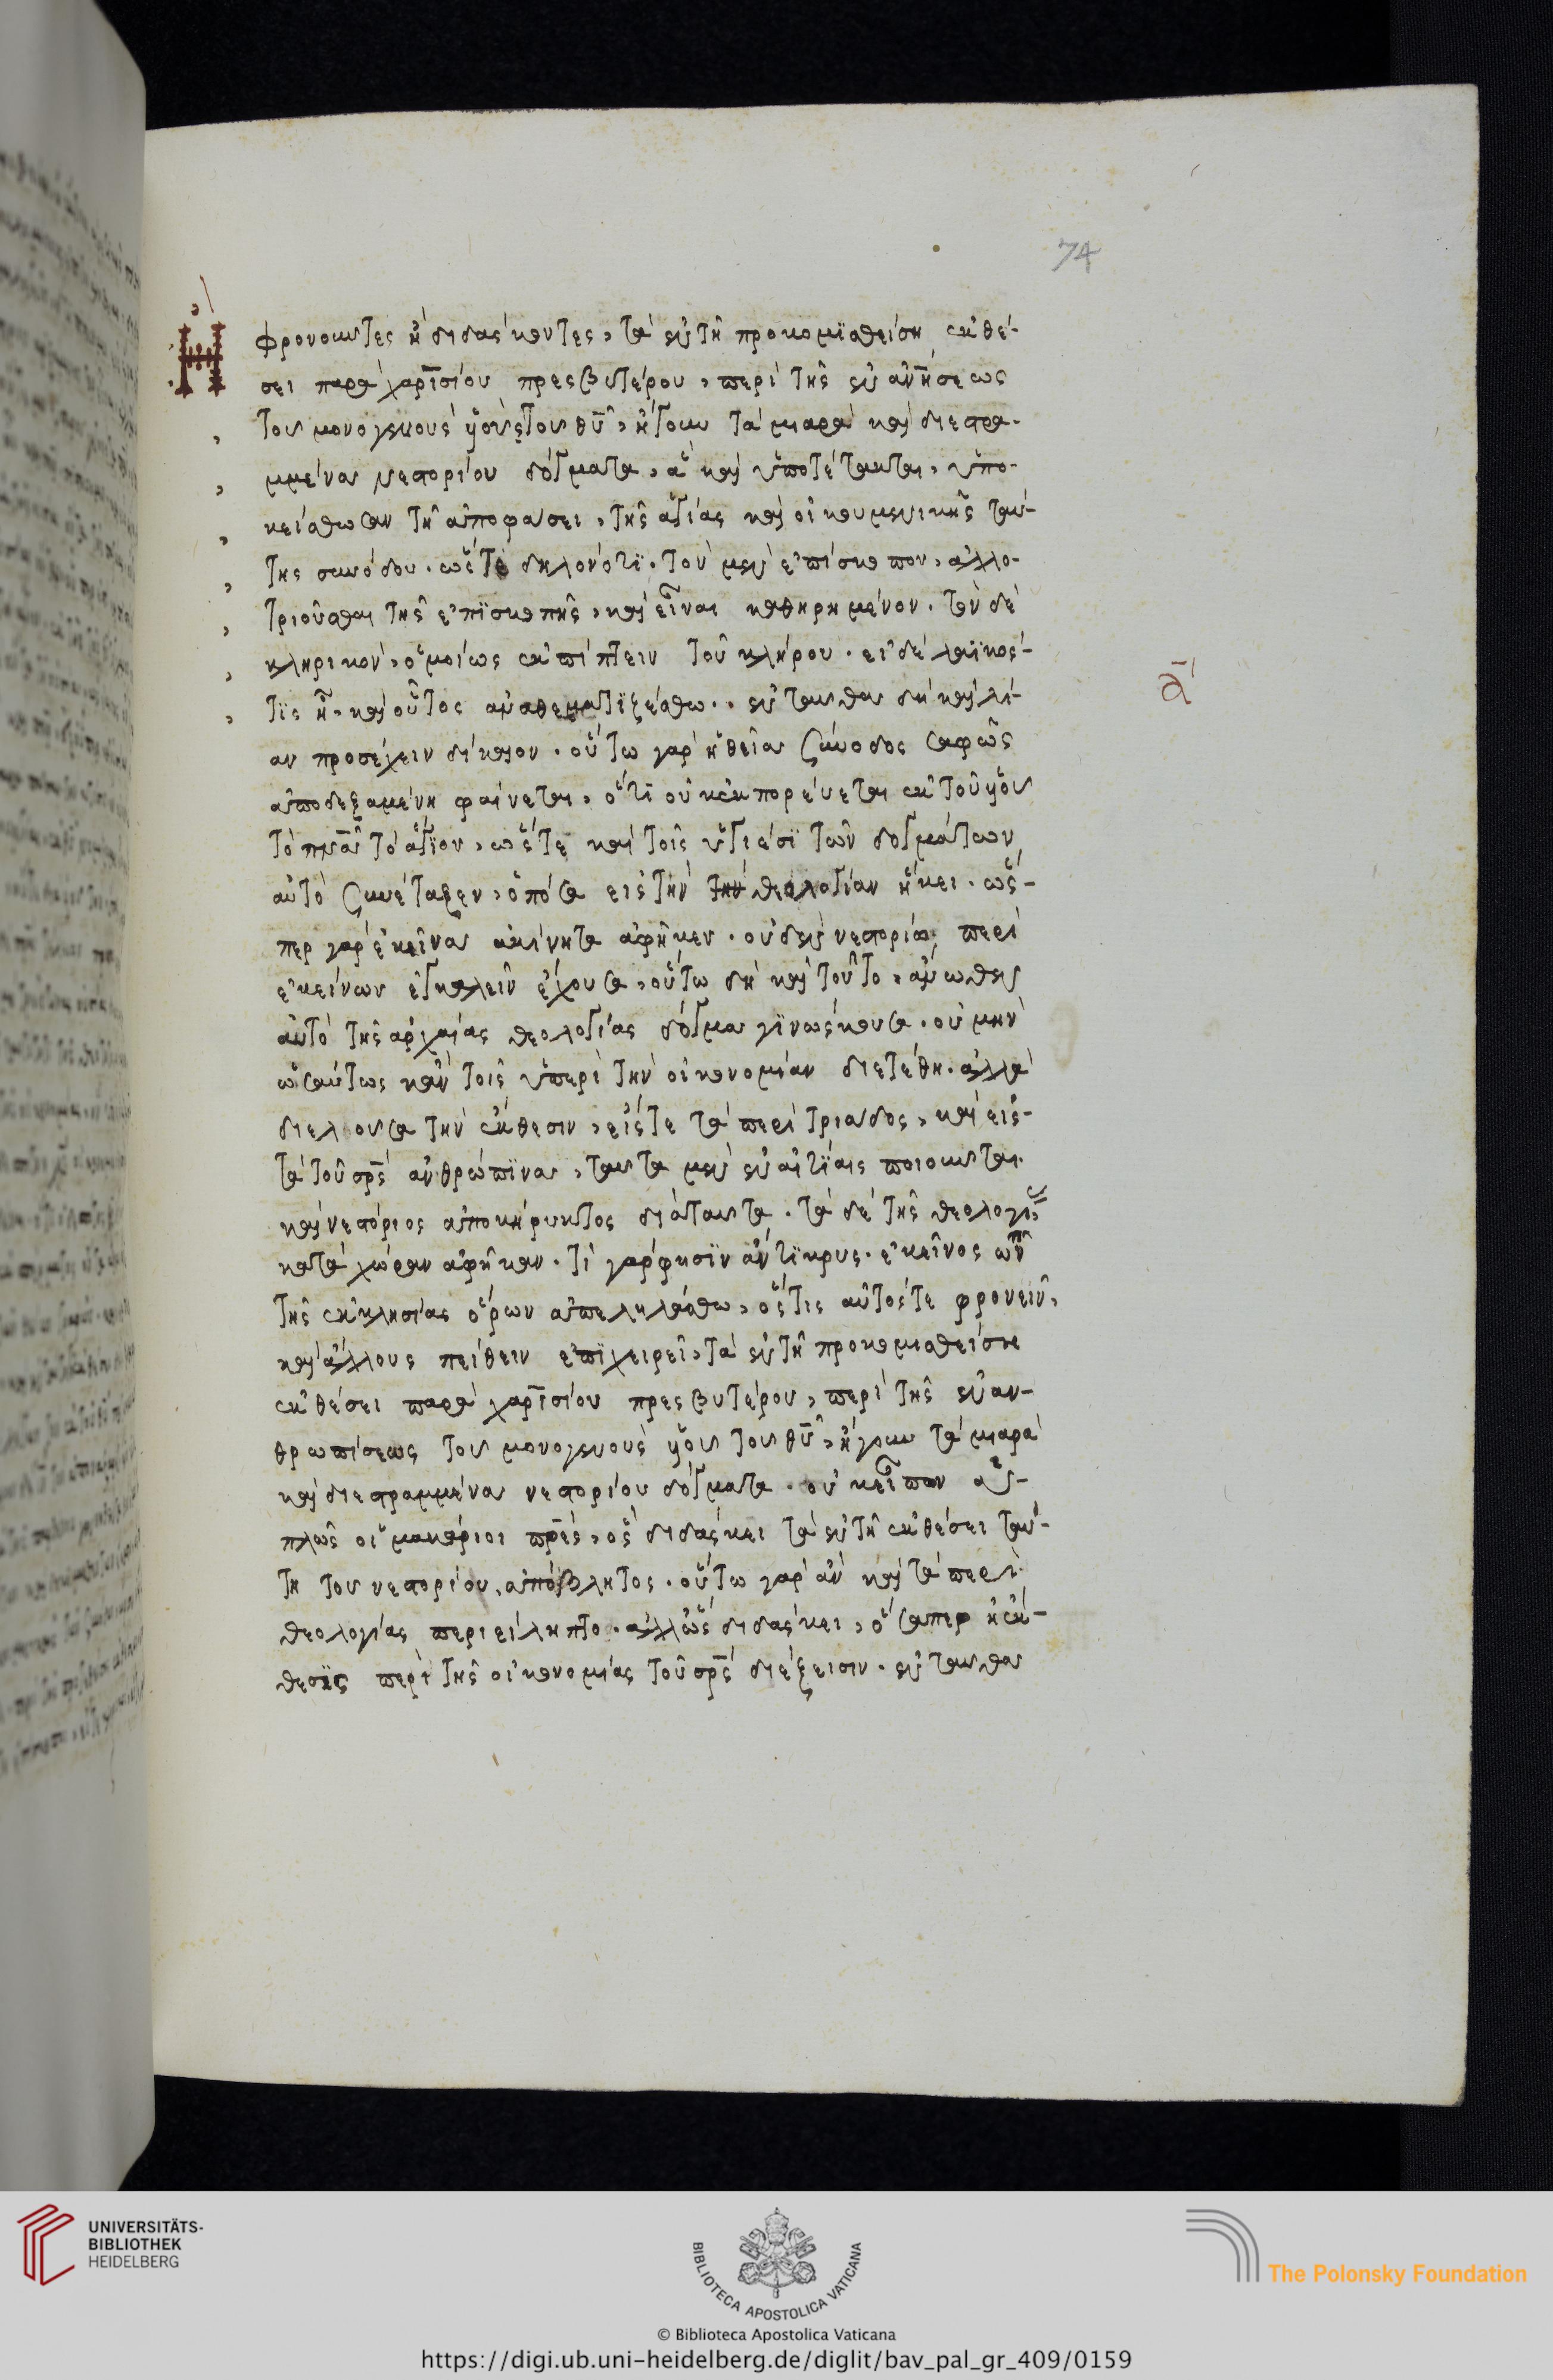 74
Η φρονοῦντες ἢ διδάσκοντες, τὰ ἐν τῆ προκομϊσθείση ἐκθέ-
σει παρὰ χαρϊσίου πρεσβυτέρου, περὶ τῆς ἐν ἀνήσεως
τοῦ μονογενοῦς ὑοῦ τοῦ θῦ, ἤγουν τὰ μιαρὰ καὶ διεστρα-
μμένα νεστορίου δόγματα, ἃ καὶ ὑποτέτακται, ὑπο-
κείσθωσαν τῆ ἀποφάσει, τῆς ἁγίας καὶ οἰκουμενικῆς ταύ-
της συνόδου. ὥστε δηλονότϊ. τὸν μὲν ἐπίσκοπον, ἀλλο-
τριοῦσθαι τῆς ἐπϊσκοπῆς, καὶ εἶναι καθηρημένον. τὸν δὲ
κληρικὸν, ὁμοίως ἐκπίπτειν τοῦ κλήρου. εἰ δὲ λαϊκός-
τϊς ἦ, καὶ οὗτος ἀναθεματϊζέσθω.. ἐνταῦθα δὴ καὶ λί-
αν προσέχειν δίκαιον. οὕτω γὰρ ἡ θεῖα σύνοδος σαφῶς
ἀποδεξαμένη φαίνεται, ὅτϊ οὐκ ἐκπορεύεται ἐκ τοῦ ὑοῦ
τὸ πνᾶ τὸ ἅγϊον, ὥστε καὶ τοῖς ὑγιέσϊ τῶν δογμάτων
αὐτὸ συνέταξεν, ὁπόσα εἰς τὴν τὴν θεολογίαν ἥκει. ὥσ-
περ γὰρ ἐκεῖνα ἀκίνητα ἀφῆκεν. οὐδὲν νεστορίω, περὶ
ἐκείνων ἐγκαλεῖν ἔχουσα, οὕτω δὴ καὶ τοῦτο, ἄνωθεν
αὐτὸ τῆς ἀρχαίας θεολογίας δόγμα γϊνώσκουσα. οὐ μὴν
ὡσαύτως κἂν τοῖς ὑπερὶ τὴν οἰκονομίαν διετέθη. ἀλλὰ
διελοῦσα τὴν ἔκθεσιν, εἴς τε τὰ περὶ τριάδος, καὶ εἰς-
τὰ τοῦ σρς ἀνθρώπϊνα, ταῦτα μὲν ἐν αἰτϊαις ποιοῦνται.
καὶ νεστόριος ἀποκήρυκτος διὰ ταῦτα. τὰ δὲ τῆς θεολογι
κατὰ χώραν ἀφῆκαν. τί γὰρ φησϊν ἄντϊκρυς. ἐκεῖνος
τῆς ἐκκλησίας ὅρων ἀπεληλάσθω, ὅς τις αὐτός τε φρονεῖν,
καὶ ἄλλους πείθειν ἐπϊχειρεῖ, τὰ ἐν τῆ προκομισθείση
ἐκθέσει παρὰ χαρϊσίου πρεσβυτέρου, περὶ τῆς ἐναν-
θρωπίσεως τοῦ μονογενοῦς ὑοῦ τοῦ θῦ, ἤγουν τὰ μιαρὰ
καὶ διεστραμμένα νεστορίου δόγματα. οὐκ εἶπον ἁ-
πλῶς οἱ μακάριοι πρες, ὃς διδάσκει τὰ ἐν τῆ ἐκθέσει ταύ-
τη τοῦ νεστορίου, ἀπόβλητος. οὕτω γὰρ ἂν καὶ τὰ περὶ
θεολογίας περιείληπτο. ἀλλ ὃς διδάσκει, ὅσαπερ ἡ ἔκ-
θεσις περὶ τῆς οἰκονομίας τοῦ σρς διέξεισιν. ἐνταῦθα
ᾱ
UNIVERSITÄTS-
BIBLIOTHEK
HEIDELBERG
BIBLIOTECA APOSTOLICA VATICANA
The Polonsky Foundation
© Biblioteca Apostolica Vaticana
https://digi.ub.uni-heidelberg.de/diglit/bav_pal_gr_409/0159